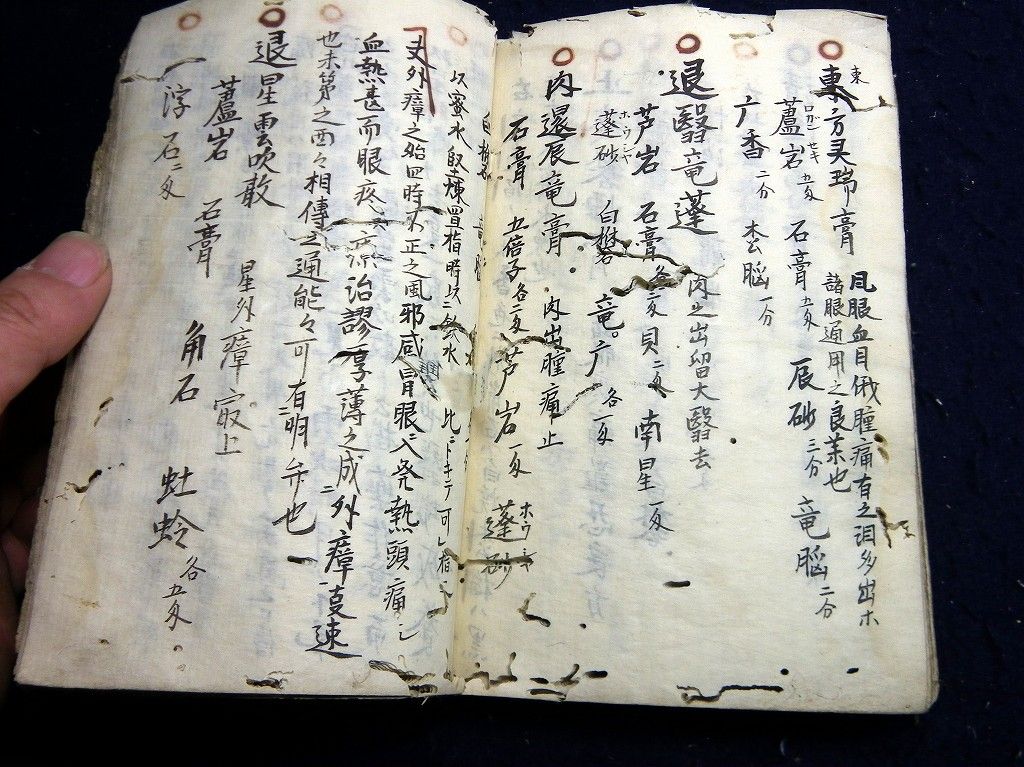 東
東方灵瑞膏
風眼血目俄腫痛有之泪多出ホ
諸眼通用之良茶也
蘆岩 五匁 石膏 五匁 辰砂 三分 竜脳 二分
ロガンセキ
广香 二分 杢脳 一分
退醫竜蓬 肉之出留大醫去
芦岩 石膏 各二匁 貝 二匁 南星 一匁
蓬砂 白礬 竜。广 各一匁
ホウシヤ
肉還辰竜膏 肉出腫痛止
石膏 五倍子 各二匁 芦岩 一匁 蓬砂
ホウシヤ
以蜜水堅煉置指時以二飲水
比ニトキテ可指
又外瘴之始四時不正之風邪感冒眼ニ入発熱頭痛シ
血熱甚而眼疼
療治謬厚薄之成外瘴
速
也未第之西々相傳之通能々可有明弁也
退星雲吹散 星外瘴㝡上
蘆岩 石膏 角石 虻蛉 各五匁
一浮石 二匁